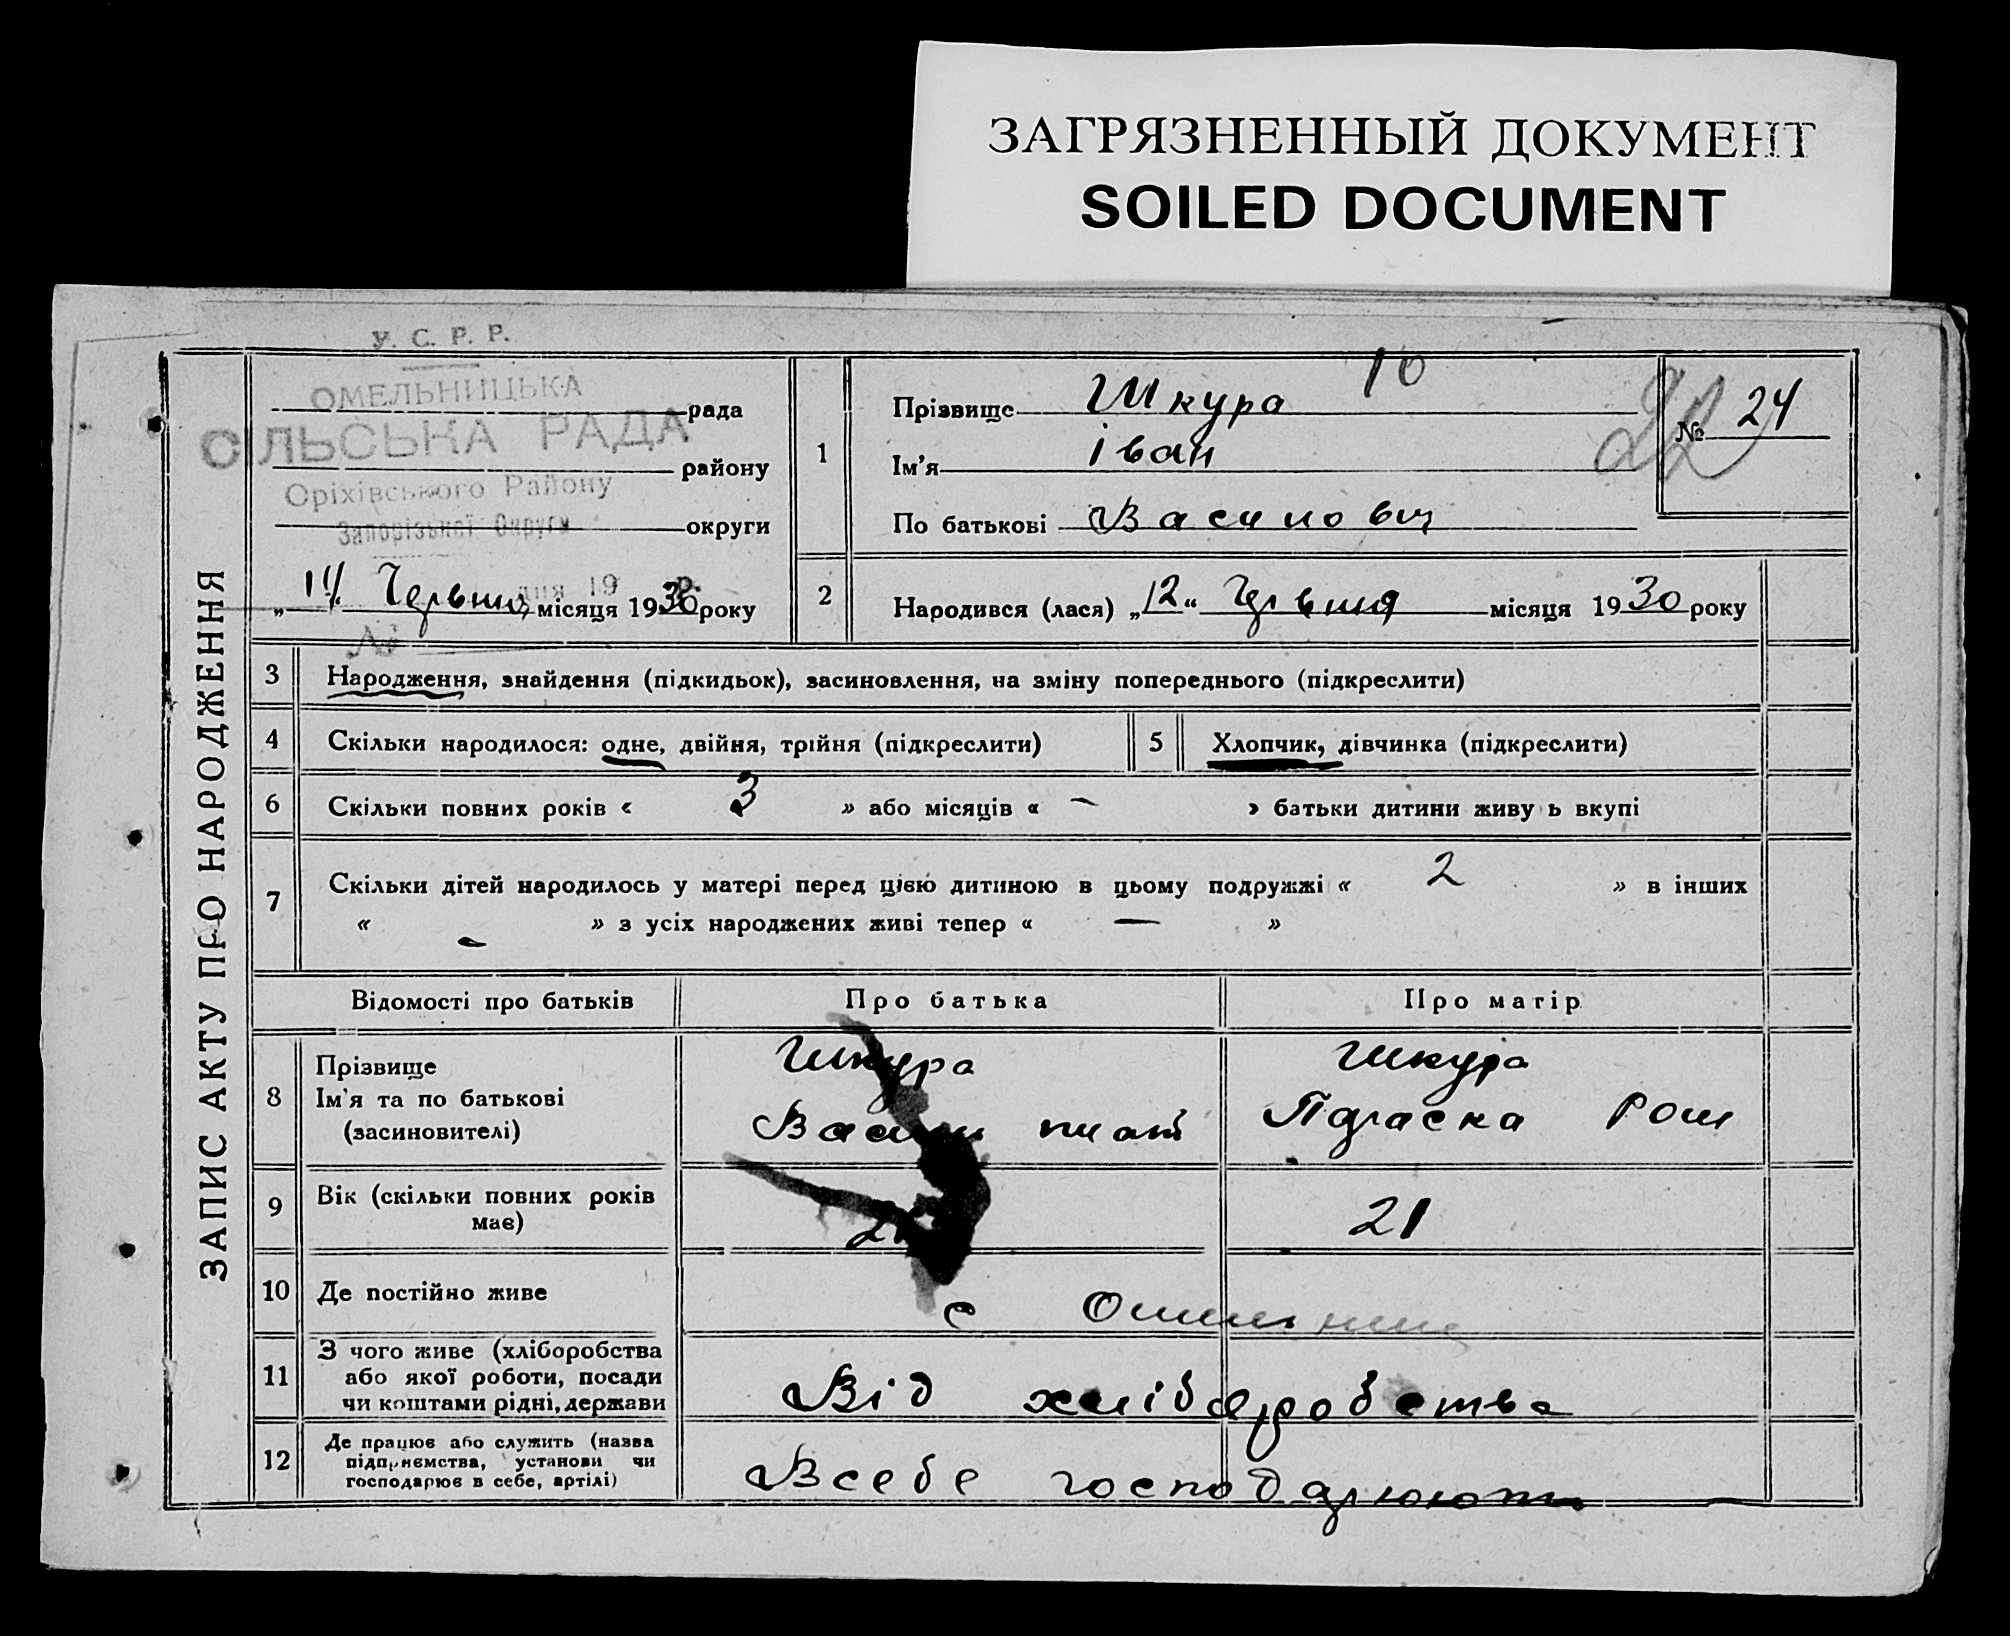 ЗАГРЯЗНЕННЫЙ ДОКУМЕНТ
SOILED DOCUMENT
ЗАПИС АКТУ ПРО НАРОДЖЕННЯ
У. С. Р. Р.
ОМЕЛЬНИЦЬКА
рада
СІЛЬСЬКА РАДА
району
Оріхівського Району
округи
Запорізької Округи
дня 19 р.
„14 Червня місяця 1930 року
№
1
10
Прізвище Шкура
Ім'я Іван
По батькові Василович
№ 24
22
2 Народився (лася) „12“ Червня місяця 1930 року
3 Народження, знайдення (підкидьок), засиновлення, на зміну попереднього (підкреслити)
4 Скільки народилося: одне, двійня, трійня (підкреслити)
5 Хлопчик, дівчинка (підкреслити)
6 Скільки повних років « 3 » або місяців « — » батьки дитини живу ь вкупі
7 Скільки дітей народилось у матері перед цією дитиною в цьому подружжі « 2 » в інших
« – » з усіх народжених живі тепер « — »
Відомості про батьків
Про батька
Про матір
8 Прізвище
Ім'я та по батькові
(засиновителі)
Шкура
Шкура
Параска
9 Вік (скільки повних років
має)
21
10 Де постійно живе
с
11 З чого живе (хліборобства
або якої роботи, посади
чи коштами рідні, держави
Від хліборобства
12 Де працює або служить (назва
підприємства, установи чи
господарює в себе, артілі)
Всебе господарюють